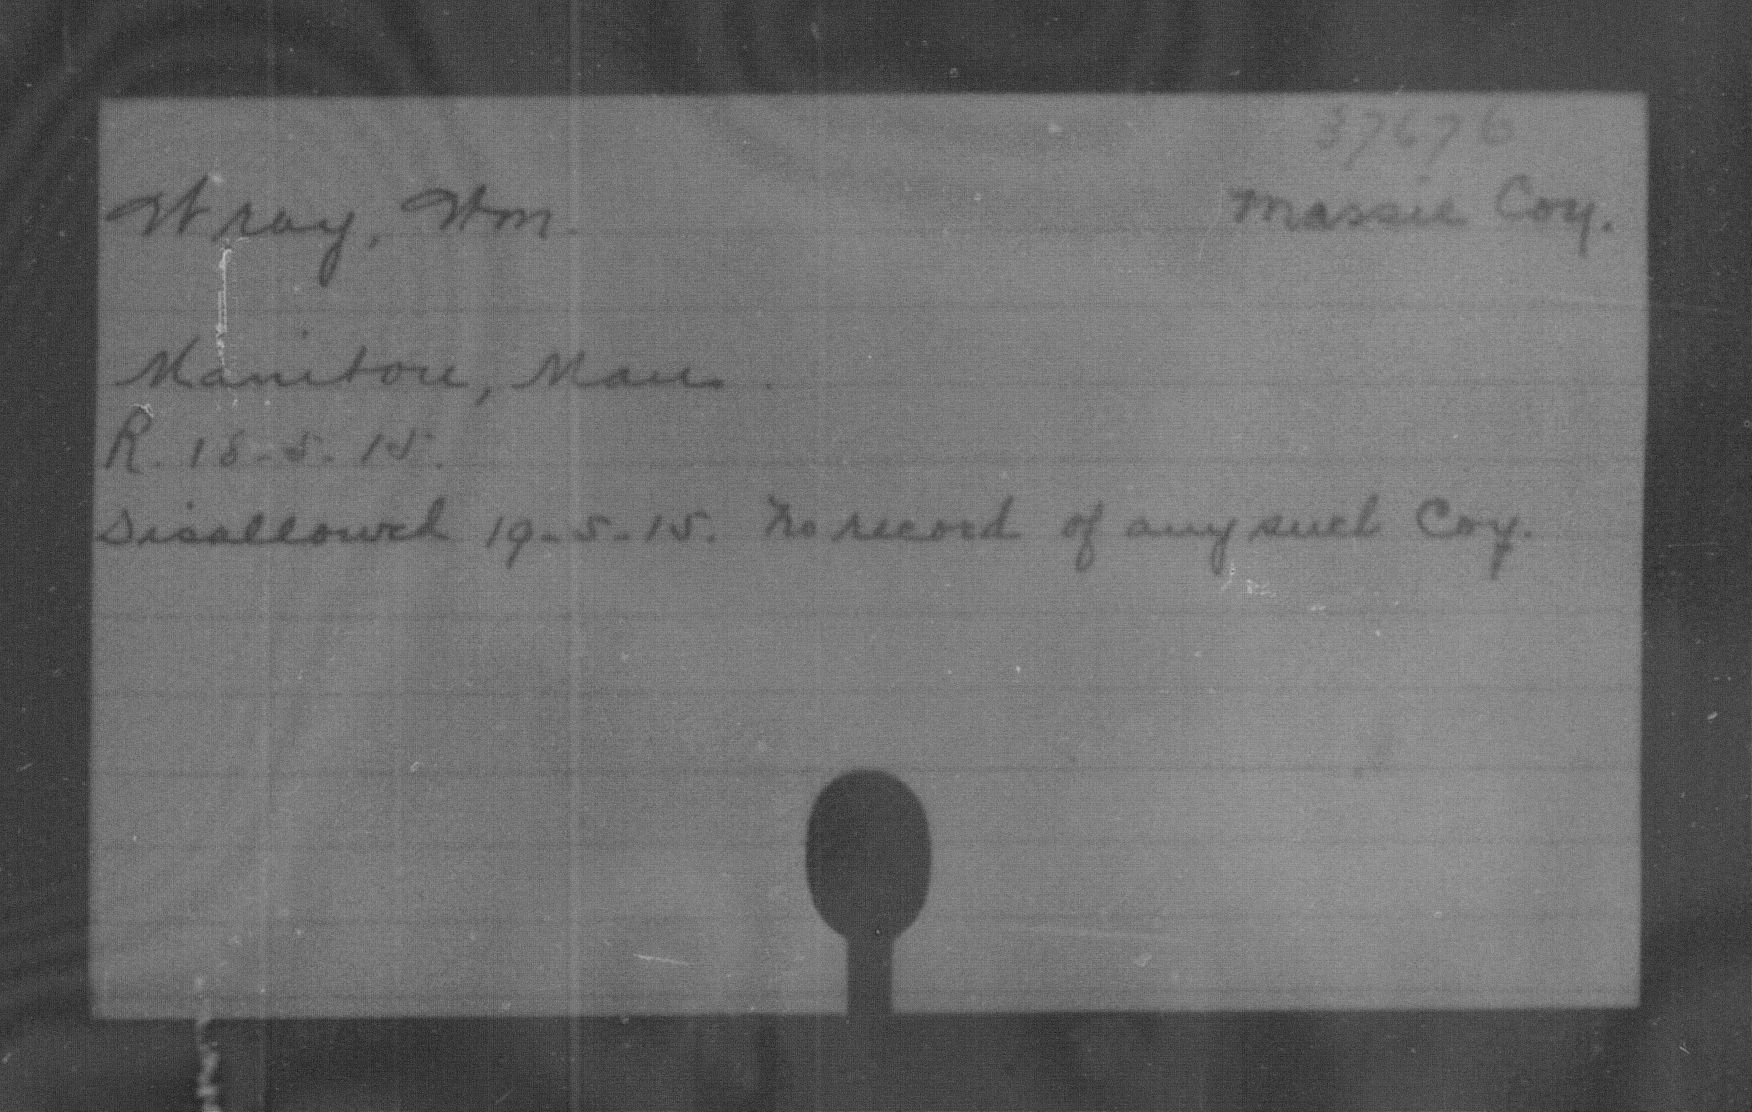 37676
Wray, Wm. Massie Coy.
Manitou, Man.
R. 18-5-15.
Disallowed 19-5-15. No record of any such Coy.